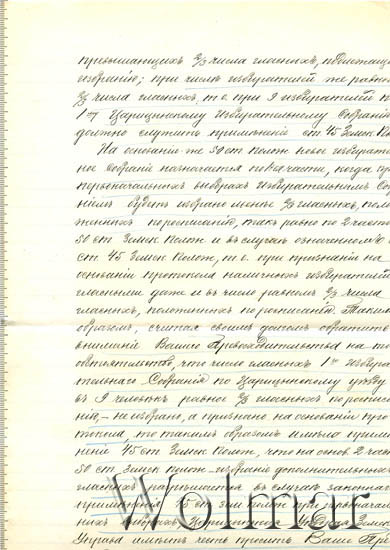 превышающихъ 2/3 числа гласныхъ, подлежащи
избранію; при числѣ избирателей же равно
2/3 числа гласныхъ, т. е. при 9 избирателей п
1му Царицынскому Избирательному Собранію
должно служить примѣненіе ст 45 Земск. Пол
На основаніи же 50 ст Полож. новое избиратель
ное собраніе назначается по
первоначальныхъ выборахъ избирательнымъ Соб
ніемъ будетъ избрано менѣе 2/3 гласныхъ, поло
женныхъ по росписанію, такъ равно по 2 части
50 ст Земск Полож. и въ случаѣ означенномъ
ст. 45 Земск Полож., т. е. при признаніи на
основаніи протокола наличныхъ избирателей
гласными даже и въ числѣ равномъ 2/3 числа
гласныхъ, положенныхъ по росписанію. Таким
образомъ, считая своимъ долгомъ обратить
вниманіе Вашего Превосходительства на то
обстоятельство, что число гласныхъ 1го Избира
тельнаго Собранія по Царицынскому уѣзду
въ 9 человѣкъ равное 2/3 гласныхъ по роспис
нію, - не избрано, а признано на основаніи про
токола, то такимъ образомъ имѣло примѣ
неніе 45 ст Земск Полож., что на основ. 2 част
50 ст. Земск Полож - избраніе дополнительныхъ
гласныхъ въ случаѣ законнаго
примѣненія 45 ст Зем Полож при первоначаль
ныхъ выборахъ Уѣздная Земс
Управа имѣетъ честь просить Ваше Пре
Wolmar